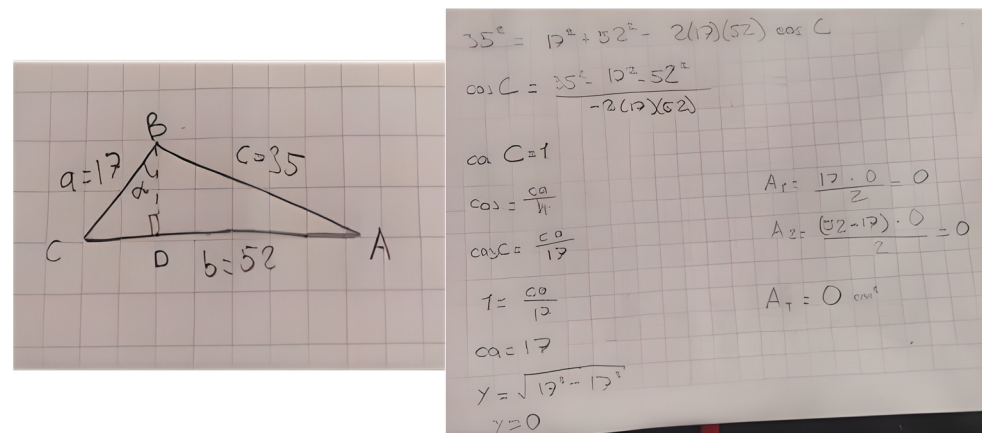 B
a=17
c=35
α
C
D
b=52
A
35² = 17² + 52² - 2(17)(52) cos C
cos C = 35² - 17² - 52² / -2(17)(52)
ca C = 1
cos = ca / h
cos C = ca / 17
1 = ca / 17
ca = 17
y = √17² - 17²
y = 0
A₁ = 17 · 0 / 2 = 0
A₂ = (52-17) · 0 / 2 = 0
A_T = 0 cm²